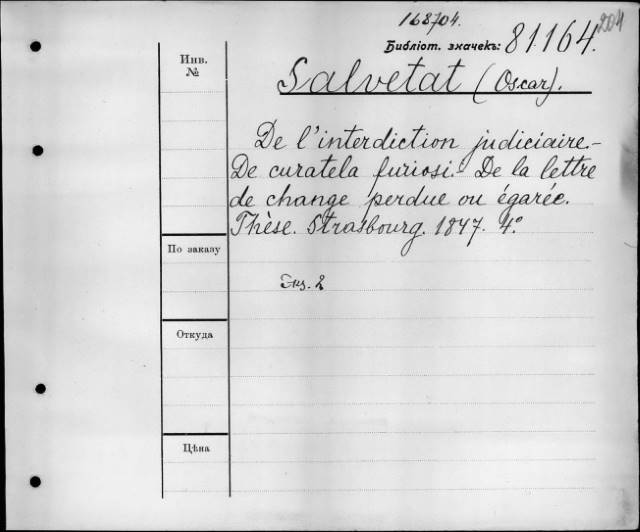 168704.
204
Библіот. значекъ: 81164.
Инв. №
Salvetat (Oscar).
De l'interdiction judiciaire.-
De curatela furiosi. De la lettre
de change perdue ou égarée.
Thèse. Strasbourg. 1847. 4º
По заказу
Экз. 2
Откуда
Цѣна